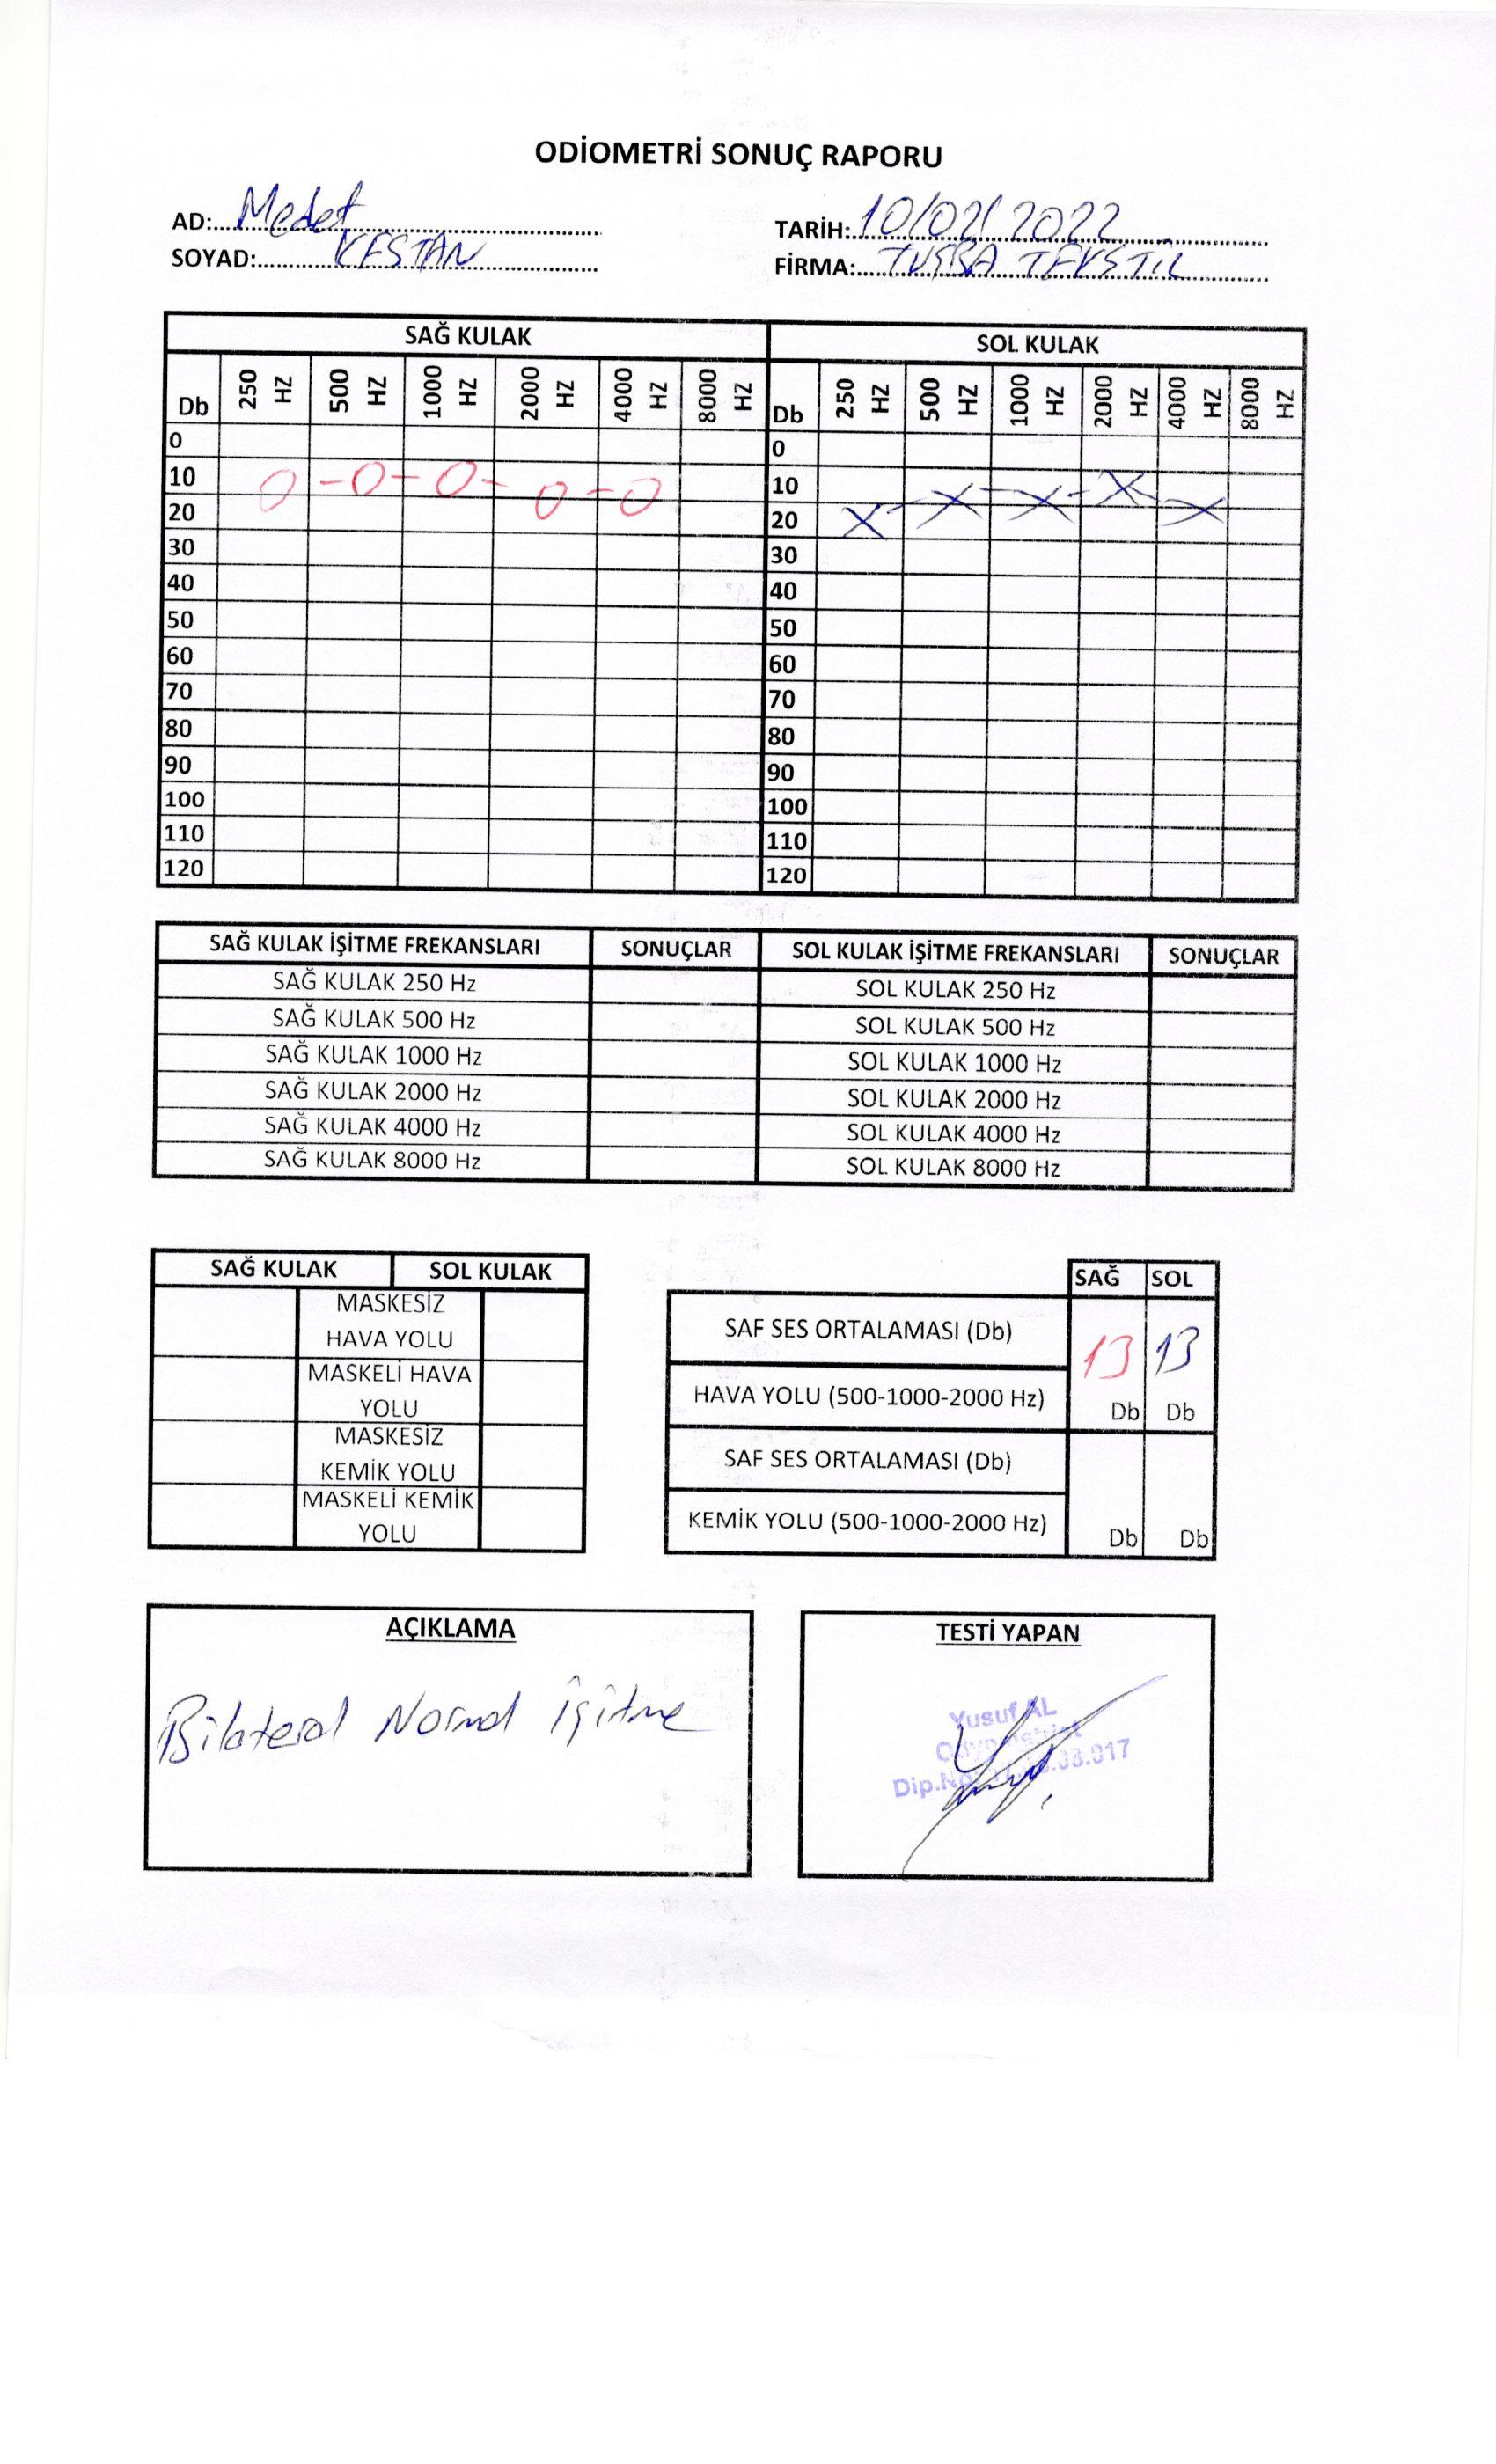 ODİOMETRİ SONUÇ RAPORU
AD: Medet
TARİH: 10/02/2022
SOYAD: KESTAN
FİRMA: TUĞBA TEKSTİL
SAĞ KULAK SOL KULAK
Db 250 HZ 500 HZ 1000 HZ 2000 HZ 4000 HZ 8000 HZ Db 250 HZ 500 HZ 1000 HZ 2000 HZ 4000 HZ 8000 HZ
0 0
10 0 - 0 - 0 - 0 - 0 10 X - X - X - X - X
20 20
30 30
40 40
50 50
60 60
70 70
80 80
90 90
100 100
110 110
120 120
SAĞ KULAK İŞİTME FREKANSLARI SONUÇLAR SOL KULAK İŞİTME FREKANSLARI SONUÇLAR
SAĞ KULAK 250 Hz SOL KULAK 250 Hz
SAĞ KULAK 500 Hz SOL KULAK 500 Hz
SAĞ KULAK 1000 Hz SOL KULAK 1000 Hz
SAĞ KULAK 2000 Hz SOL KULAK 2000 Hz
SAĞ KULAK 4000 Hz SOL KULAK 4000 Hz
SAĞ KULAK 8000 Hz SOL KULAK 8000 Hz
SAĞ KULAK SOL KULAK
MASKESİZ
HAVA YOLU
MASKELİ HAVA
YOLU
MASKESİZ
KEMİK YOLU
MASKELİ KEMİK
YOLU
SAĞ SOL
SAF SES ORTALAMASI (Db) 13 13
HAVA YOLU (500-1000-2000 Hz) Db Db
SAF SES ORTALAMASI (Db)
KEMİK YOLU (500-1000-2000 Hz) Db Db
AÇIKLAMA
Bilateral Normal İşitme
TESTİ YAPAN
Yusuf AL
Dip.No
.08.017